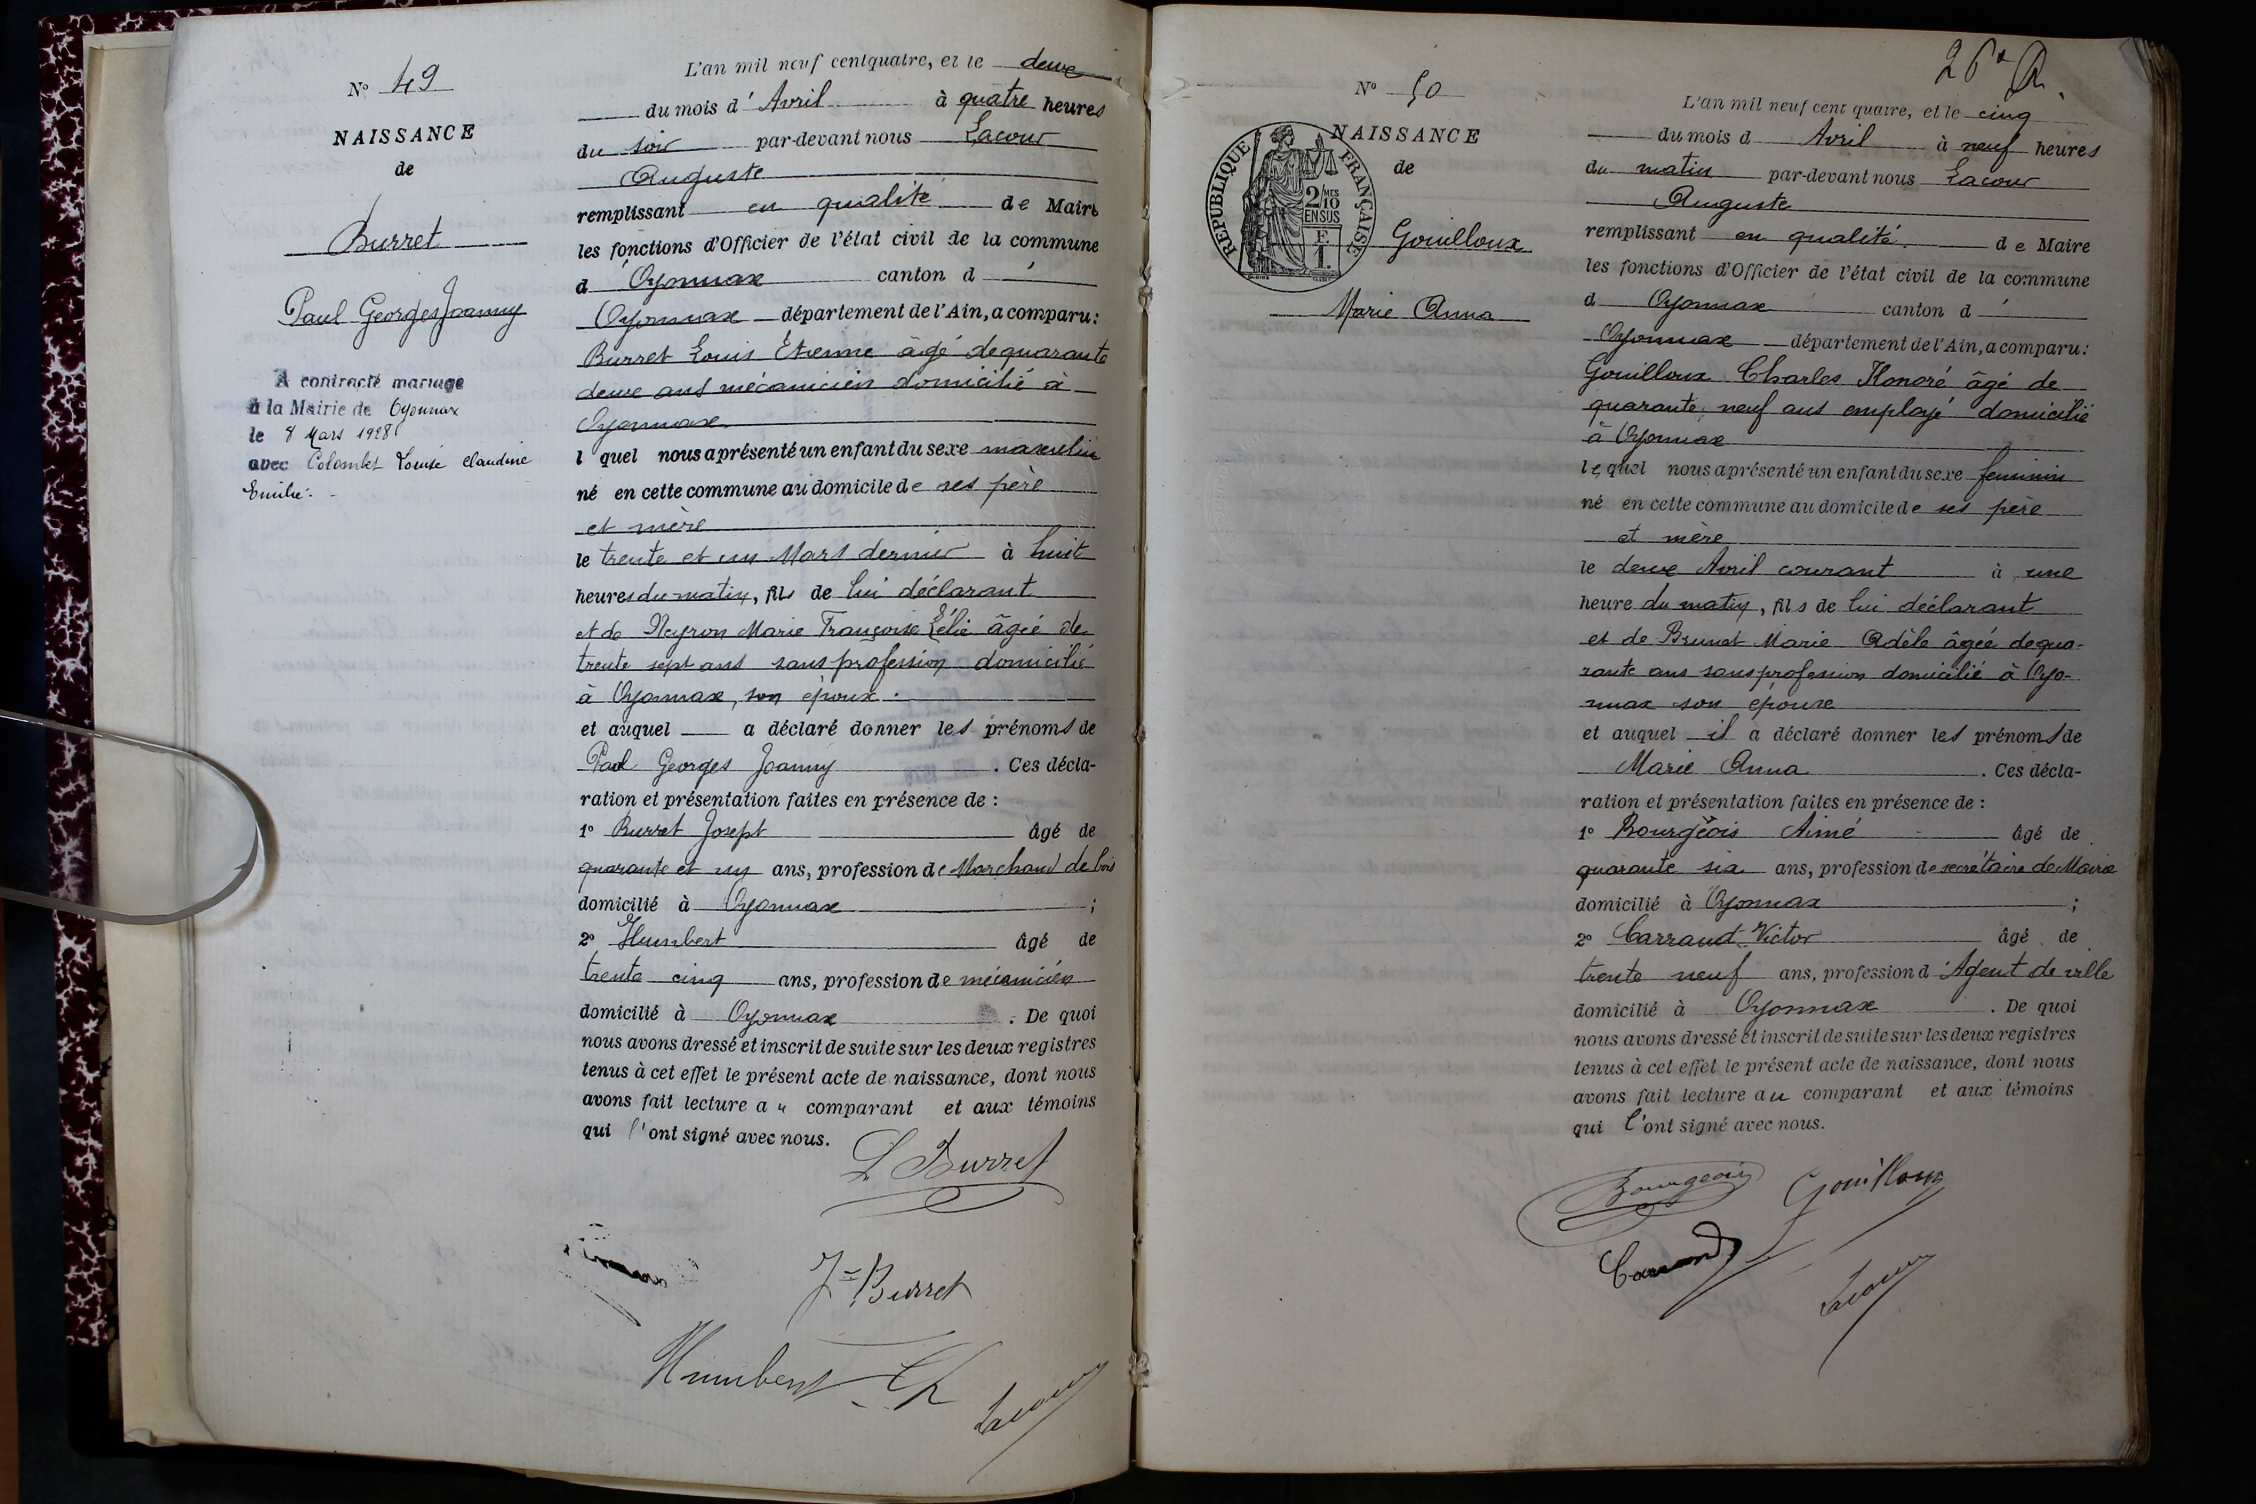 N° 49
NAISSANCE
de
Burret
Paul Georges Joanny
A contracté mariage
à la Mairie de Oyonnax
le 8 Mars 1928
avec Colomb Louise Claudine
Emilie.
L'an mil neuf cent quatre, et le deux
du mois d' Avril à quatre heures
du soir par-devant nous Lacour
Auguste
remplissant en qualité de Maire
les fonctions d'Officier de l'état civil de la commune
d' Oyonnax canton d'
Oyonnax département de l'Ain, a comparu:
Burret Louis Etienne âgé de quarante
deux ans mécanicien domicilié à
Oyonnax
l quel nous a présenté un enfant du sexe masculin
né en cette commune au domicile de ses père
et mère
le trente et un Mars dernier à huit
heures du matin, fils de lui déclarant
et de Neyron Marie Françoise Lélie âgée de
trente sept ans sans profession domicilié
à Oyonnax, son époux.
et auquel a déclaré donner les prénoms de
Paul Georges Joanny . Ces décla-
ration et présentation faites en présence de :
1° Burret Joseph âgé de
quarante et un ans, profession de Marchand de bois
domicilié à Oyonnax ;
2° Humbert âgé de
trente cinq ans, profession de mécanicien
domicilié à Oyonnax . De quoi
nous avons dressé et inscrit de suite sur les deux registres
tenus à cet effet le présent acte de naissance, dont nous
avons fait lecture au comparant et aux témoins
qui l'ont signé avec nous.
L Burret
Jh Burret
Humbert
Lacour
26e
N° 50
NAISSANCE
de
RÉPUBLIQUE FRANÇAISE
2 MES
10
EN SUS
F.
1.
Gouilloux
Marie Anna
L'an mil neuf cent quatre, et le cinq
du mois d Avril à neuf heures
du matin par-devant nous Lacour
Auguste
remplissant en qualité de Maire
les fonctions d'Officier de l'état civil de la commune
d Oyonnax canton d'
Oyonnax département de l'Ain, a comparu:
Gouilloux Charles Honoré âgé de
quarante neuf ans employé domicilié
à Oyonnax
lequel nous a présenté un enfant du sexe feminin
né en cette commune au domicile de ses père
et mère
le deux Avril courant à une
heure du matin, fils de lui déclarant
et de Brunet Marie Adèle âgée de qua-
rante ans sans profession domicilié à Oyo-
nnax son épouse
et auquel il a déclaré donner les prénoms de
Marie Anna . Ces décla-
ration et présentation faites en présence de :
1° Bourgeois Aimé âgé de
quarante six ans, profession de secrétaire de Mairie
domicilié à Oyonnax ;
2° Carraud Victor âgé de
trente neuf ans, profession d'Agent de ville
domicilié à Oyonnax . De quoi
nous avons dressé et inscrit de suite sur les deux registres
tenus à cet effet le présent acte de naissance, dont nous
avons fait lecture au comparant et aux témoins
qui l'ont signé avec nous.
Bourgeois Gouilloux
Carraud
Lacour